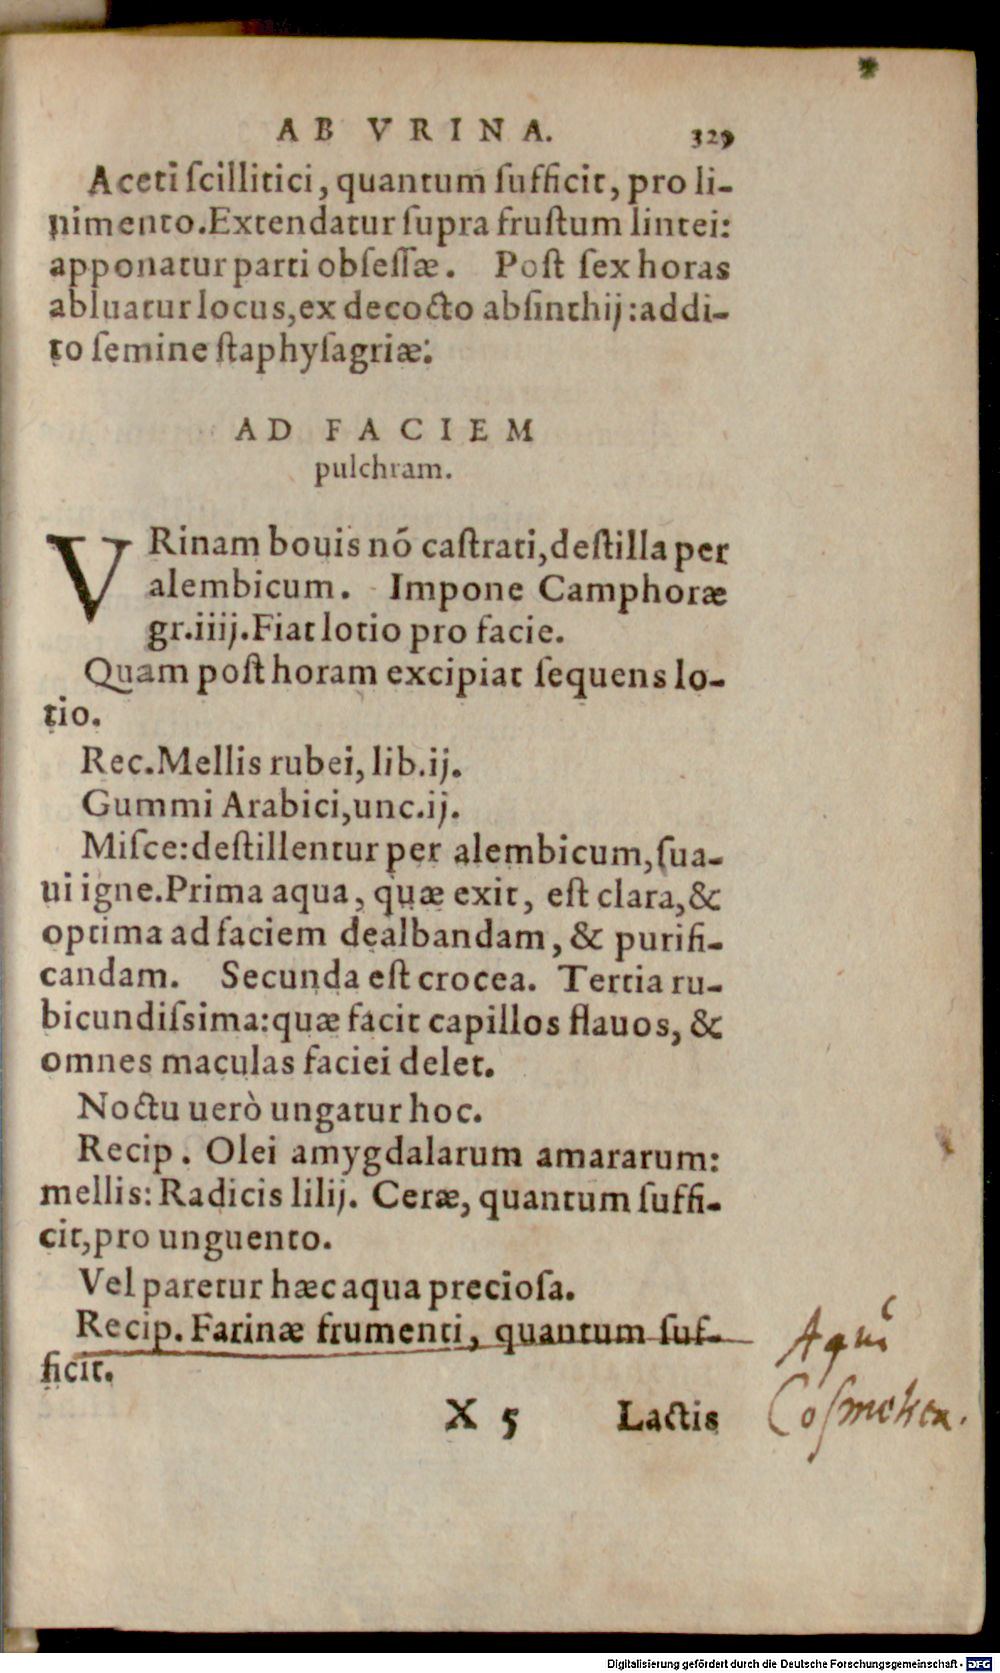 AB VRINA. 329
Aceti ſcillitici, quantum ſufficit, pro li-
nimento. Extendatur ſupra fruſtum lintei:
apponatur parti obſeſſæ. Poſt ſex horas
abluatur locus, ex decocto abſinthij: addi-
to ſemine ſtaphyſagriæ.
AD FACIEM
pulchram.
VRinam bouis nõ caſtrati, deſtilla per
alembicum. Impone Camphoræ
gr. iiij. Fiat lotio pro facie.
Quam poſt horam excipiat ſequens lo-
tio.
Rec. Mellis rubei, lib. ij.
Gummi Arabici, unc. ij.
Miſce: deſtillentur per alembicum, ſua-
ui igne. Prima aqua, quæ exit, eſt clara, &
optima ad faciem dealbandam, & purifi-
candam. Secunda eſt crocea. Tertia ru-
bicundiſsima: quæ facit capillos flauos, &
omnes maculas faciei delet.
Noctu uerò ungatur hoc.
Recip. Olei amygdalarum amararum:
mellis: Radicis lilij. Ceræ, quantum ſuffi-
cit, pro unguento.
Vel paretur hæc aqua precioſa.
Recip. Farinæ frumenti, quantum ſuf-
ficit.
X 5 Lactis
Digitalisierung gefördert durch die Deutsche Forschungsgemeinschaft - DFG